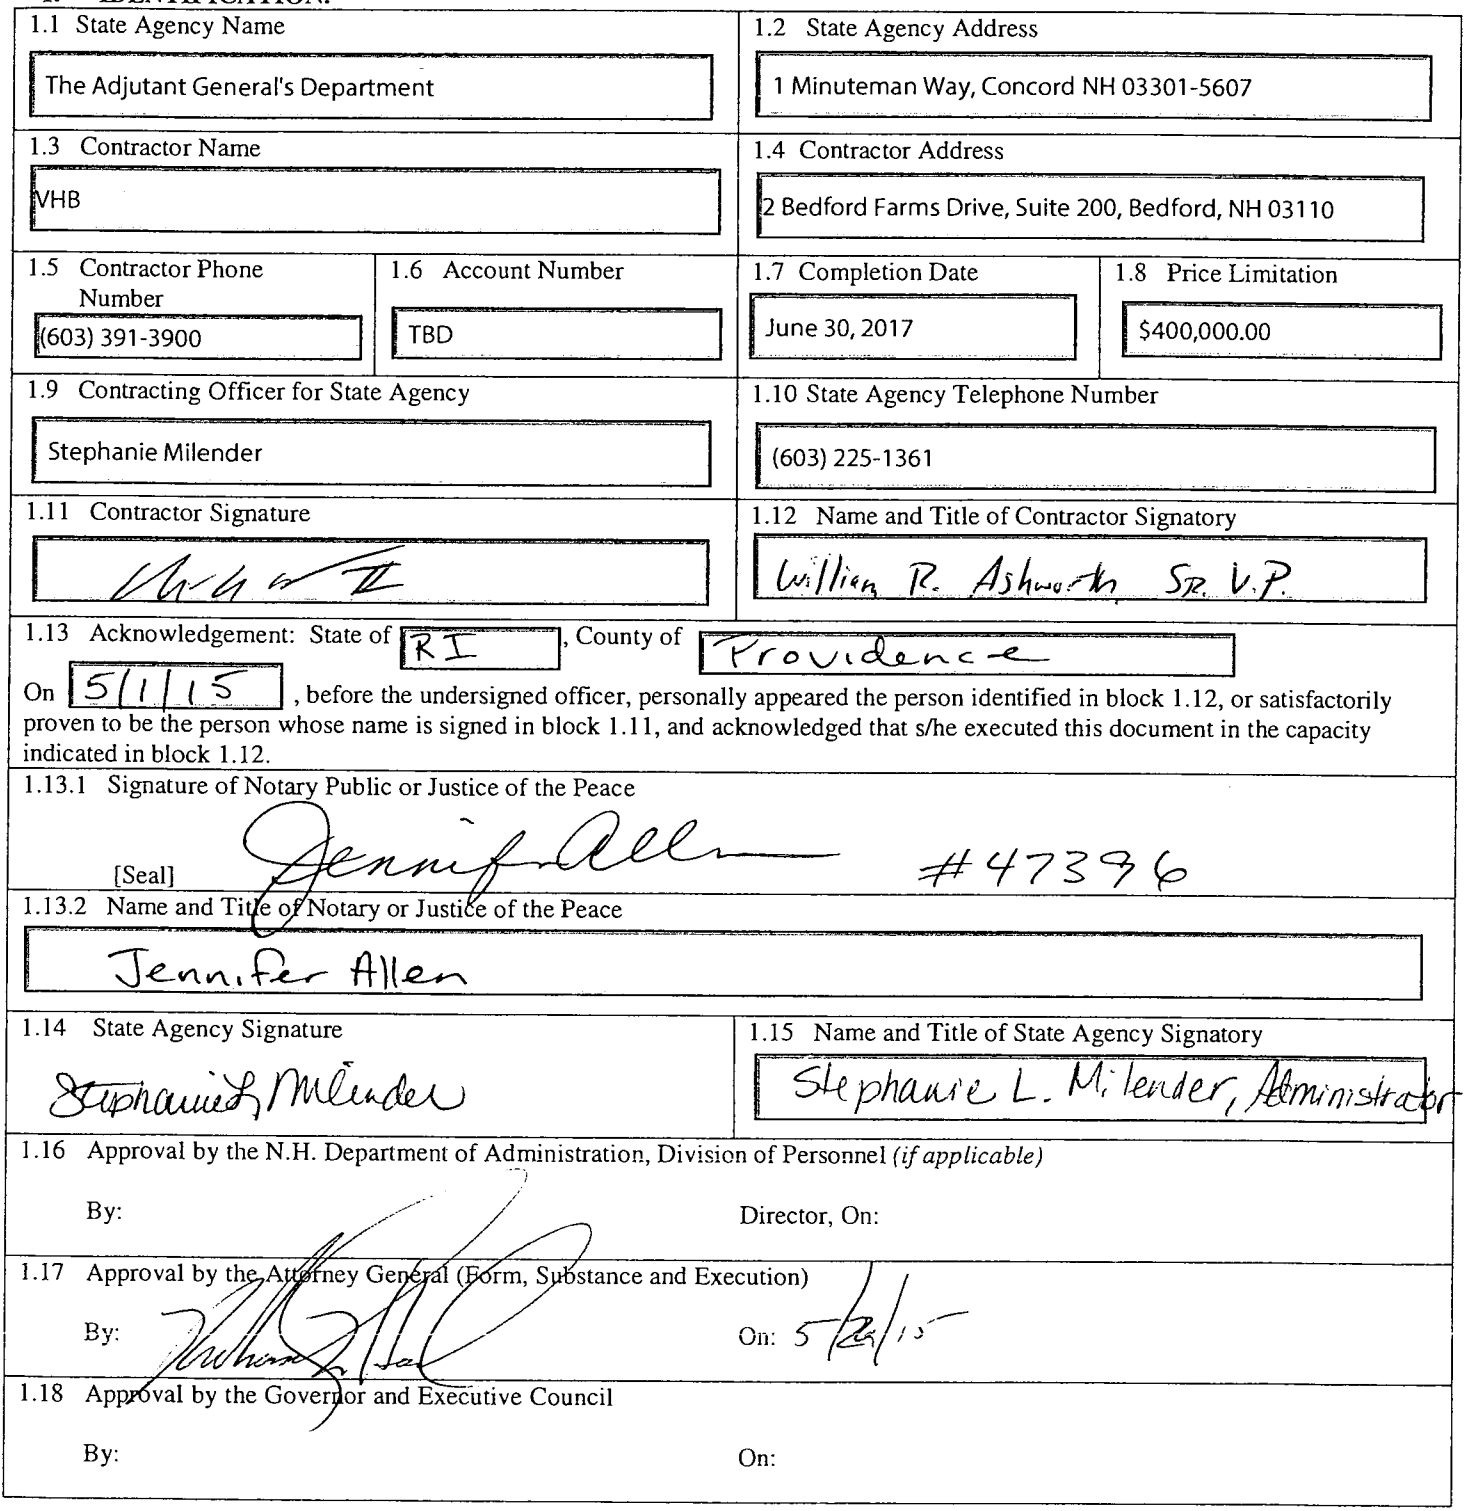 1.1 State Agency Name
The Adjutant General's Department
1.2 State Agency Address
1 Minuteman Way, Concord NH 03301-5607
1.3 Contractor Name
VHB
1.4 Contractor Address
2 Bedford Farms Drive, Suite 200, Bedford, NH 03110
1.5 Contractor Phone
Number
(603) 391-3900
1.6 Account Number
TBD
1.7 Completion Date
June 30, 2017
1.8 Price Limitation
$400,000.00
1.9 Contracting Officer for State Agency
Stephanie Milender
1.10 State Agency Telephone Number
(603) 225-1361
1.11 Contractor Signature
1.12 Name and Title of Contractor Signatory
William R. Ashworth SR. V.P.
1.13 Acknowledgement: State of RI, County of Providence
On 5/1/15, before the undersigned officer, personally appeared the person identified in block 1.12, or satisfactorily
proven to be the person whose name is signed in block 1.11, and acknowledged that s/he executed this document in the capacity
indicated in block 1.12.
1.13.1 Signature of Notary Public or Justice of the Peace
[Seal] Jennifer Allen #47396
1.13.2 Name and Title of Notary or Justice of the Peace
Jennifer Allen
1.14 State Agency Signature
Stephanie L Milender
1.15 Name and Title of State Agency Signatory
Stephanie L. Milender, Administrator
1.16 Approval by the N.H. Department of Administration, Division of Personnel (if applicable)
By:
Director, On:
1.17 Approval by the Attorney General (Form, Substance and Execution)
By:
On:
1.18 Approval by the Governor and Executive Council
By:
On: